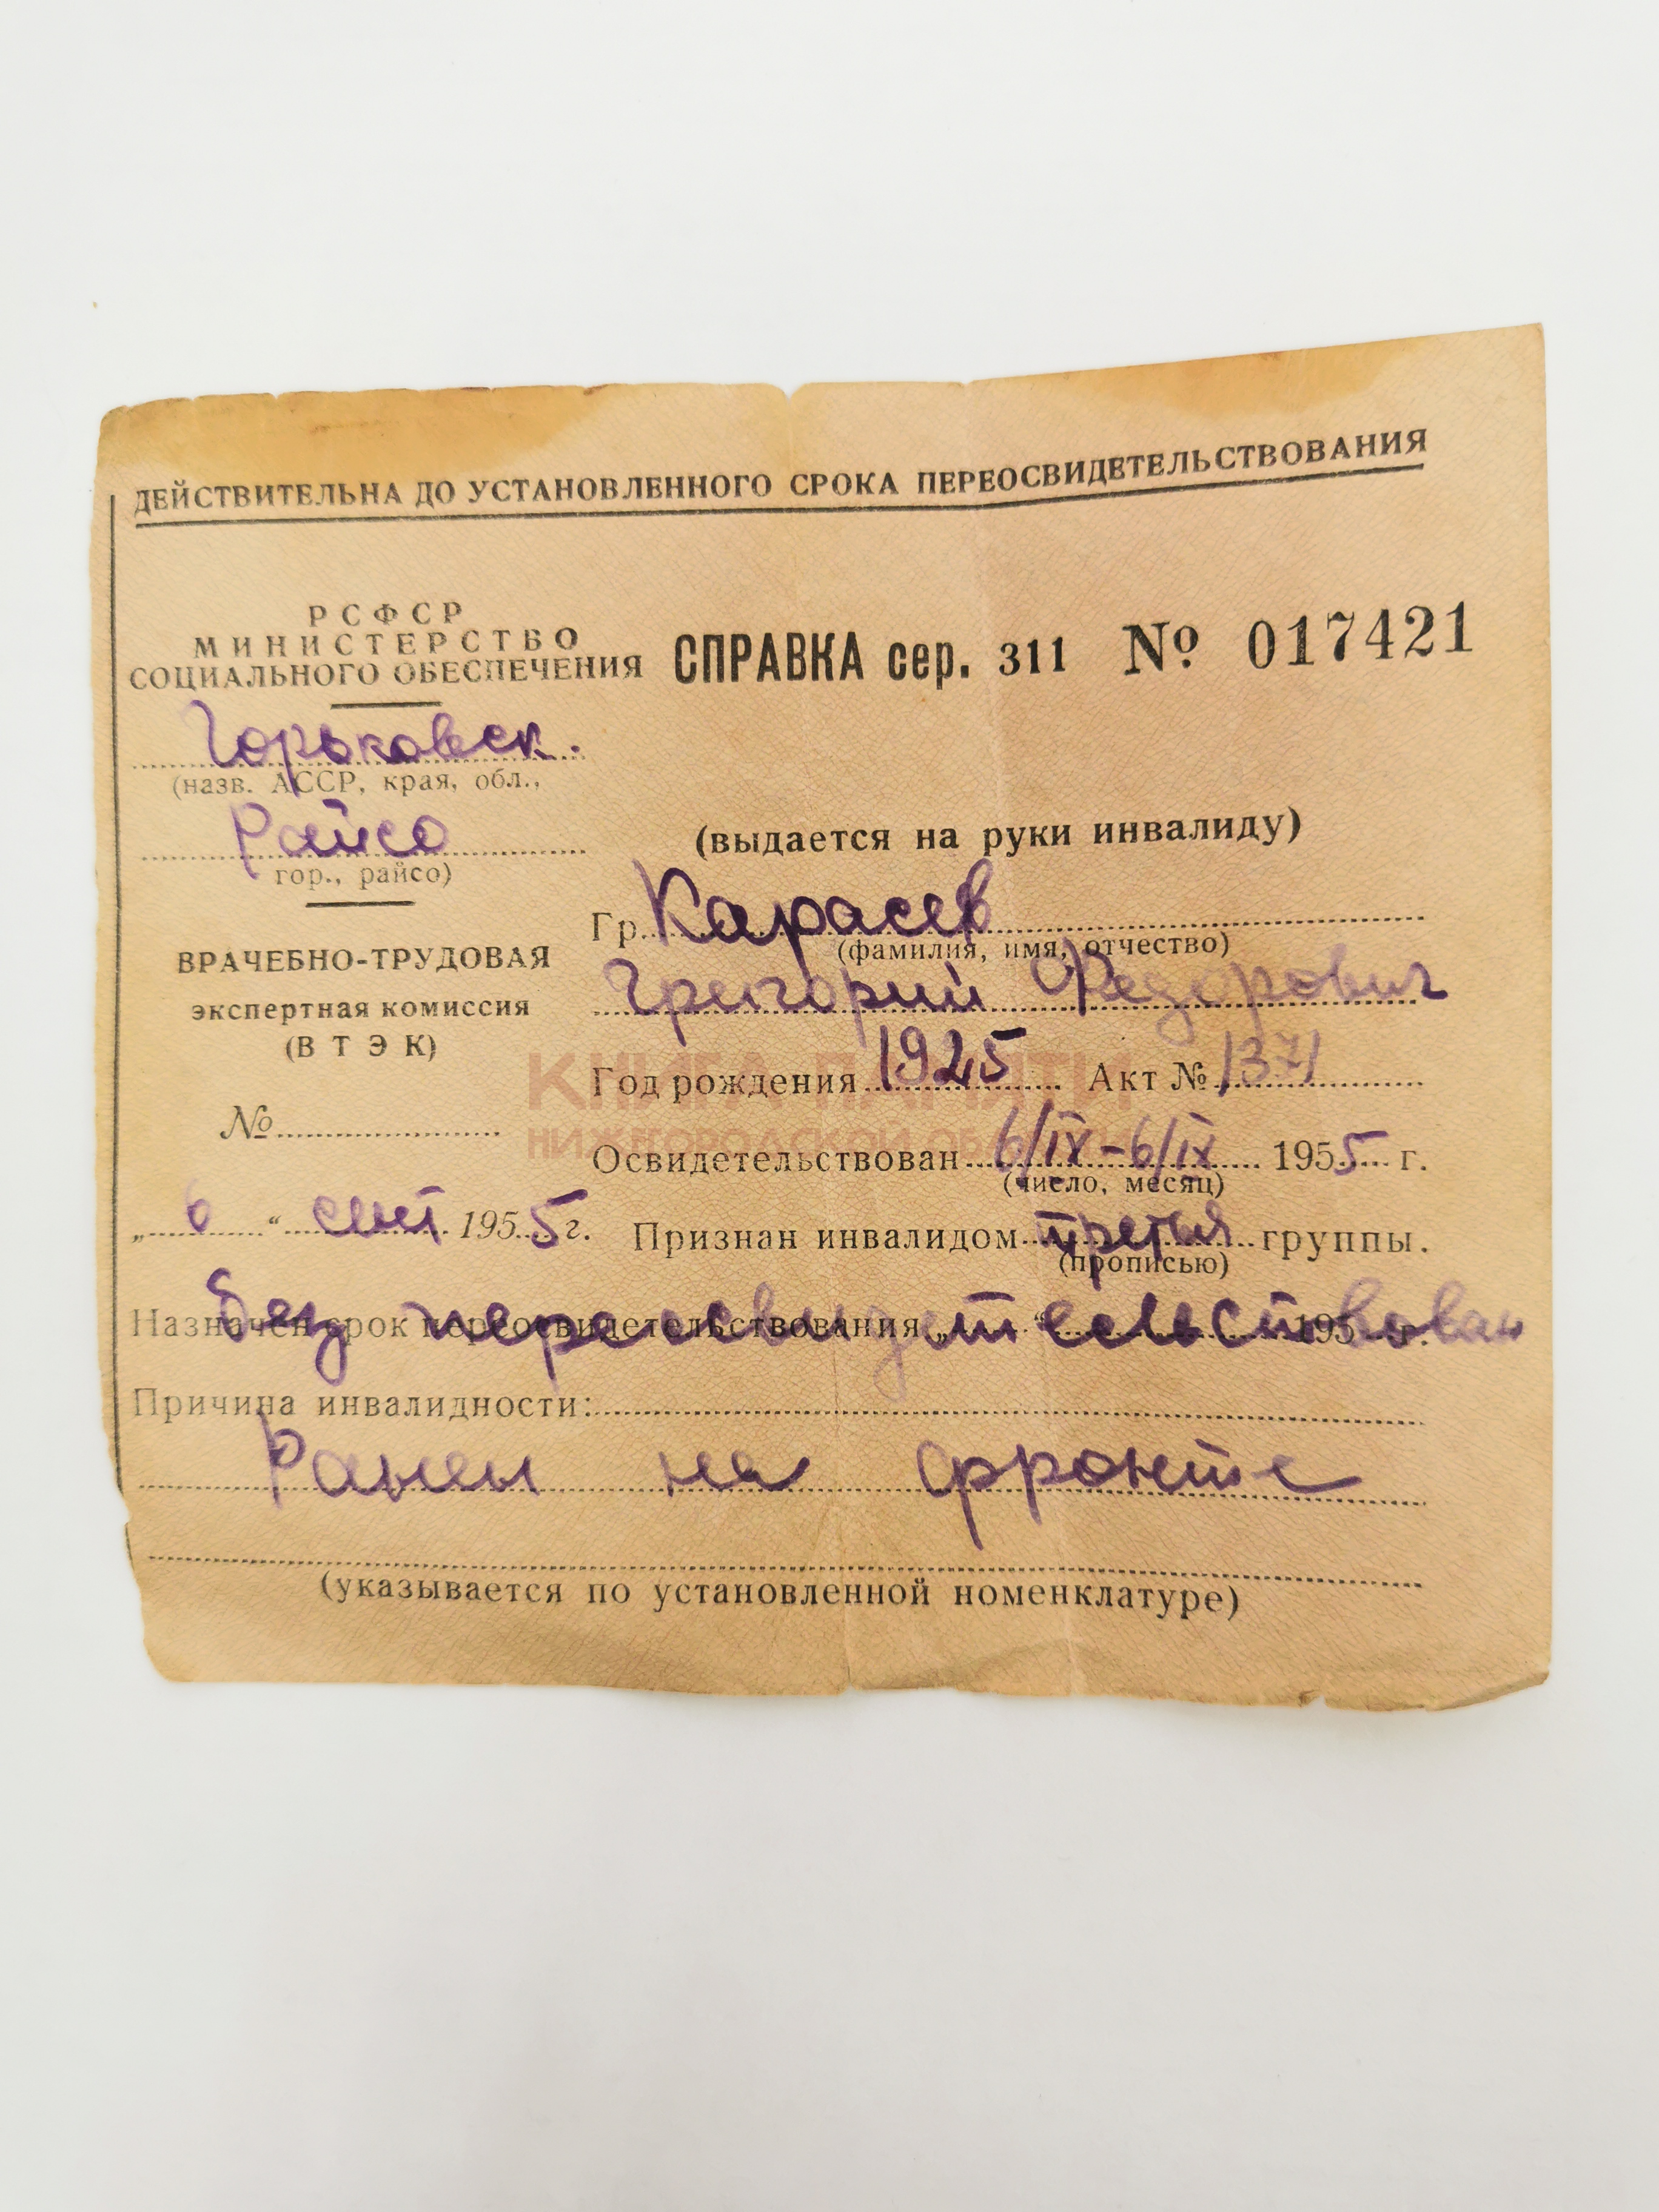 ДЕЙСТВИТЕЛЬНА ДО УСТАНОВЛЕННОГО СРОКА ПЕРЕОСВИДЕТЕЛЬСТВОВАНИЯ
РСФСР
МИНИСТЕРСТВО
СОЦИАЛЬНОГО ОБЕСПЕЧЕНИЯ
СПРАВКА сер. 311 № 017421
Горьковск.
(назв. АССР, края, обл.,
Райсо
гор., райсо)
(выдается на руки инвалиду)
ВРАЧЕБНО-ТРУДОВАЯ
экспертная комиссия
(ВТЭК)
№
„6“ сент 1955 г.
Гр. Карасев
(фамилия, имя, отчество)
Григорий Федорович
Год рождения 1925 Акт № 1371
КНИГА ПАМЯТИ
НИЖЕГОРОДСКОЙ ОБЛАСТИ
Освидетельствован 6/IX-6/IX 1955 г.
(число, месяц)
Признан инвалидом третья группы.
(прописью)
Назначен срок переосвидетельствования „ “ 195 г.
без переосвидетельствован
Причина инвалидности:
Ранен на фронте
(указывается по установленной номенклатуре)